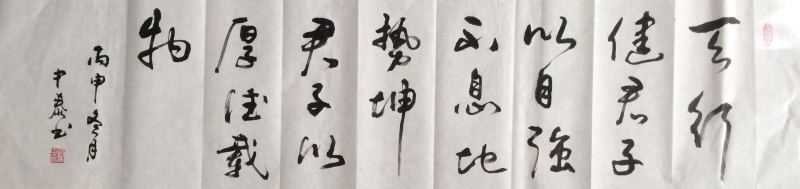 天行
健君子
以自強
不息地
勢坤
君子以
厚德載
物
丙申冬月
中泰书